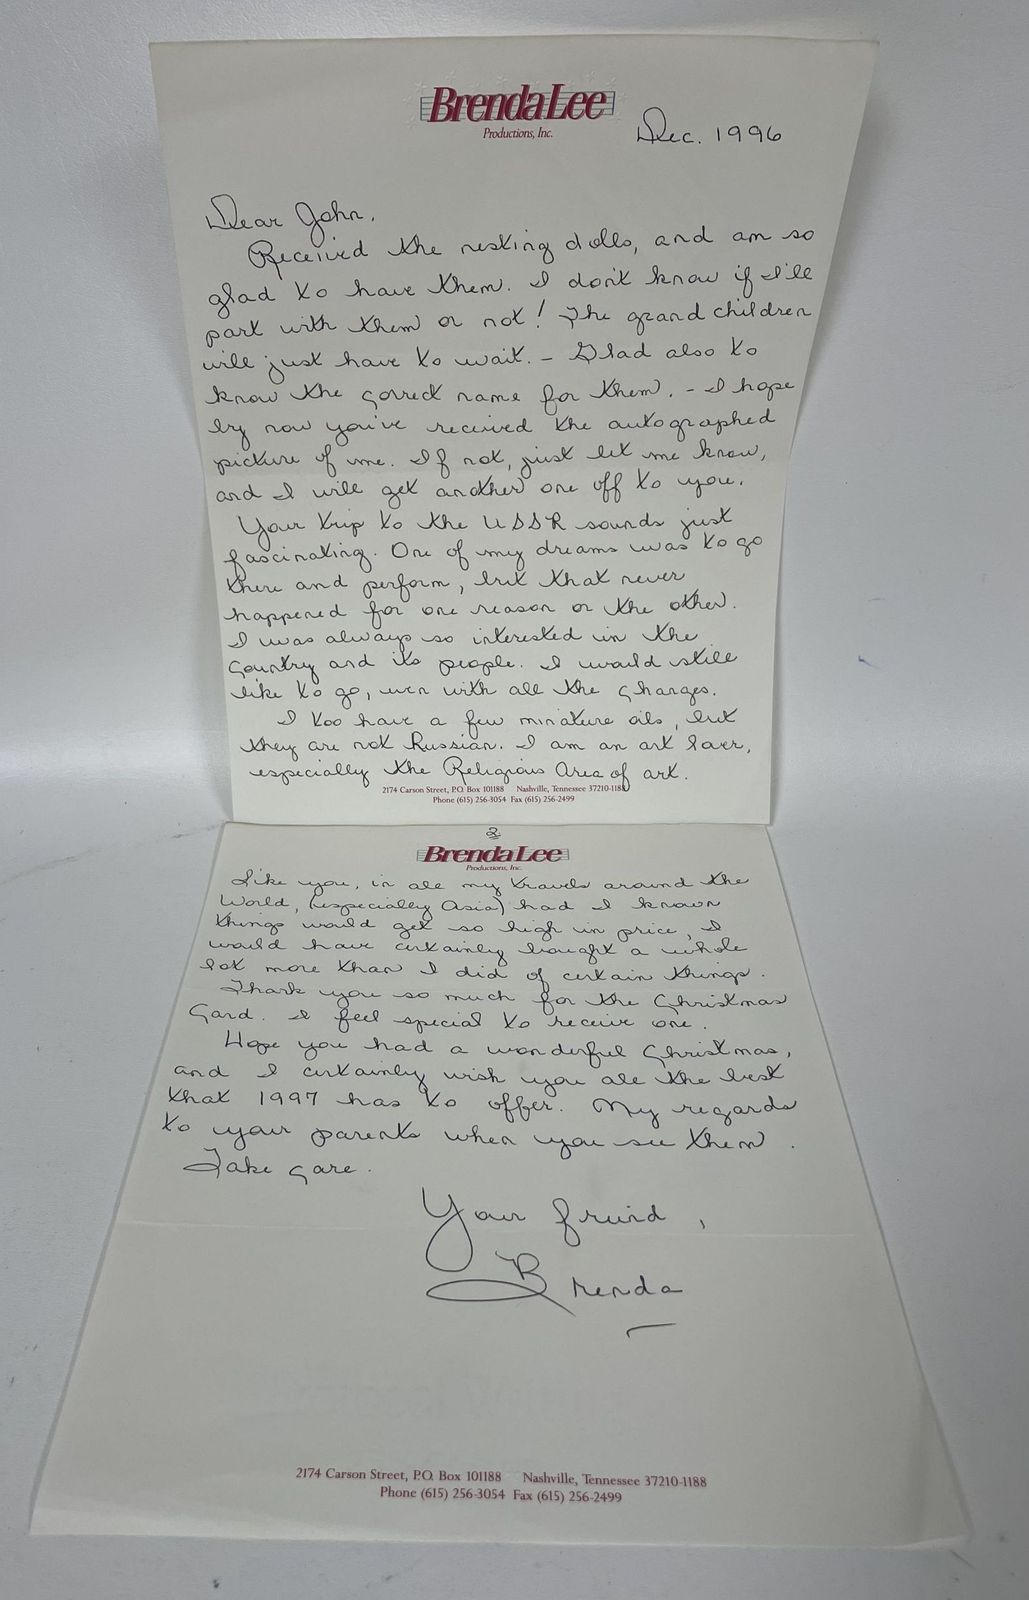 BrendaLee
Productions, Inc.
Dec. 1996
Dear John,
Received the nesting dolls, and am so
glad to have them. I don't know if I'll
part with them or not! The grandchildren
will just have to wait. – Glad also to
know the correct name for them. – I hope
by now you've received the autographed
picture of me. If not, just let me know,
and I will get another one off to you.
Your trip to the USSR sounds just
fascinating. One of my dreams was to go
there and perform, but that never
happened for one reason or the other.
I was always so interested in the
Country and its people. I would still
like to go, even with all the changes.
I too have a few minature oils, but
they are not Russian. I am an art lover,
especially the Religious Area of art.
2174 Carson Street, P.O. Box 101188 Nashville, Tennessee 37210-1188
Phone (615) 256-3054 Fax (615) 256-2499
2
BrendaLee
Productions, Inc.
Like you, in all my travels around the
World, (especially Asia) had I known
things would get so high in price, I
would have certainly bought a whole
lot more than I did of certain things.
Thank you so much for the Christmas
Card. I feel special to receive one.
Hope you had a wonderful Christmas,
and I certainly wish you all the best
that 1997 has to offer. My regards
to your parents when you see them.
Take Care.
Your friend,
Brenda
2174 Carson Street, P.O. Box 101188 Nashville, Tennessee 37210-1188
Phone (615) 256-3054 Fax (615) 256-2499